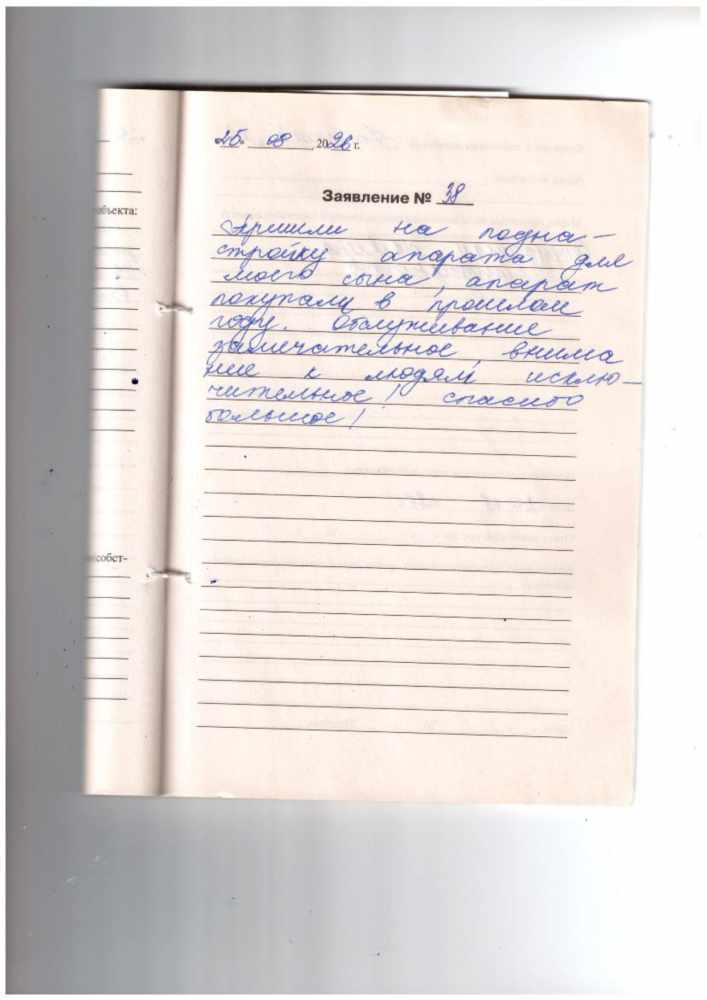 25 08 2026 г.
Заявление № 38
объекта:
Пришли на подна-
стройку апарата для
моего сына, апарат
покупали в прошлом
году. Обслуживание
замечательное, внима
ние к людям исклю-
чительное! спасибо
большое!
собст-